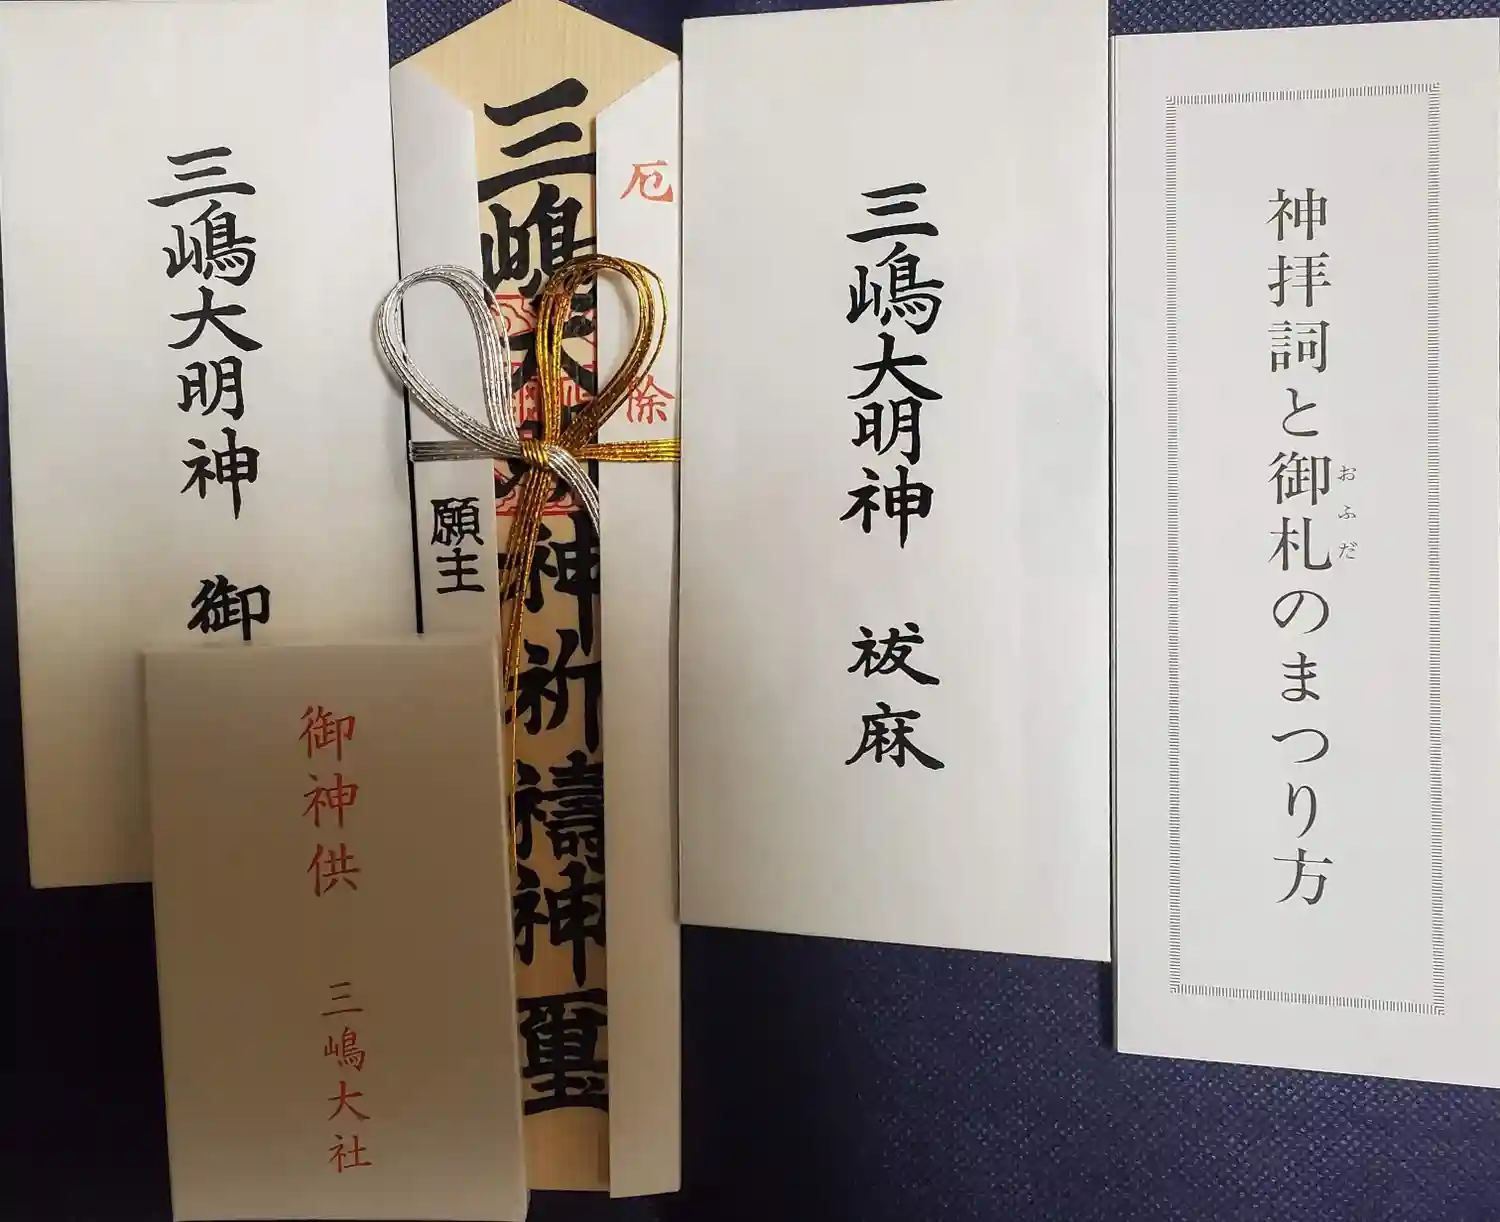 神拝詞と御札のまつり方
おふだ
三嶋大明神 祓麻
厄除
三嶋大明神祈禱神璽
願主
三嶋大明神 御
御神供
三嶋大社